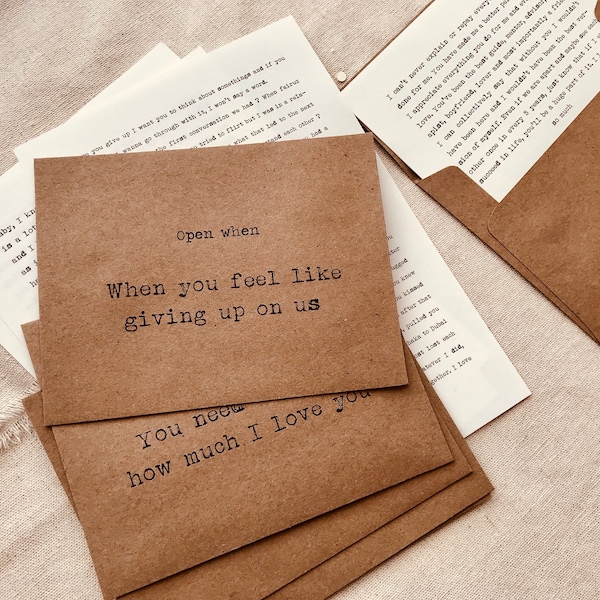 Open when
When you feel like
giving up on us
You need
how much I love you
you give up I want you to think about somethings and if you
wanna go through with it, I won't say a word.
the first conversation we had ? When fairuz
you tried to flirt but I was in a rela-
what that led to the next
each other ?
had a
is a lot
and I
I can't never explain or repay every
done for me, you have made me a better
I appreciate everything you do for me and
love. You've been the best guide, mentor,
boyfriend, lover and most importantly a
I can collectively say that without you I wouldn't
have been here and I wouldn't have been the
sion of myself. Even if we are apart and maybe see each
other once in every 5 years, just know that if I
succeed in life, you'll be a huge part of it. I
so much
you know
you kissed
after that
pulled you
to Dubai
lost each
whatever I did,
I love